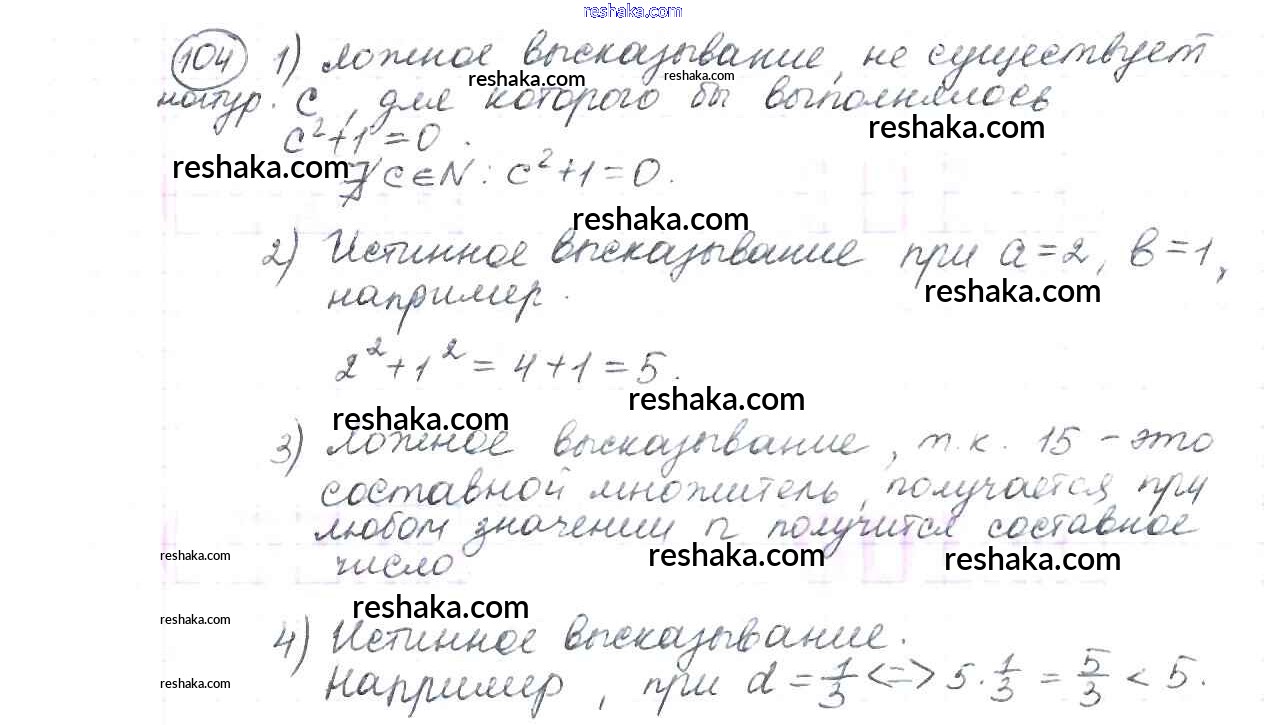 reshaka.com
104 1) ложное высказывание, не существует
reshaka.com reshaka.com
натур. c, для которого бы выполнялось
reshaka.com
c²+1=0.
reshaka.com
∄ c∈N: c²+1=0.
reshaka.com
2) Истинное высказывание при a=2, b=1,
reshaka.com
например.
2²+1²=4+1=5.
reshaka.com
reshaka.com
3) ложное высказывание, т.к. 15 – это
составной множитель, получается при
любом значении n получится составное
reshaka.com reshaka.com reshaka.com
число
reshaka.com
reshaka.com
4) Истинное высказывание.
Например, при d=1/3 <=> 5·1/3 = 5/3 < 5.
reshaka.com